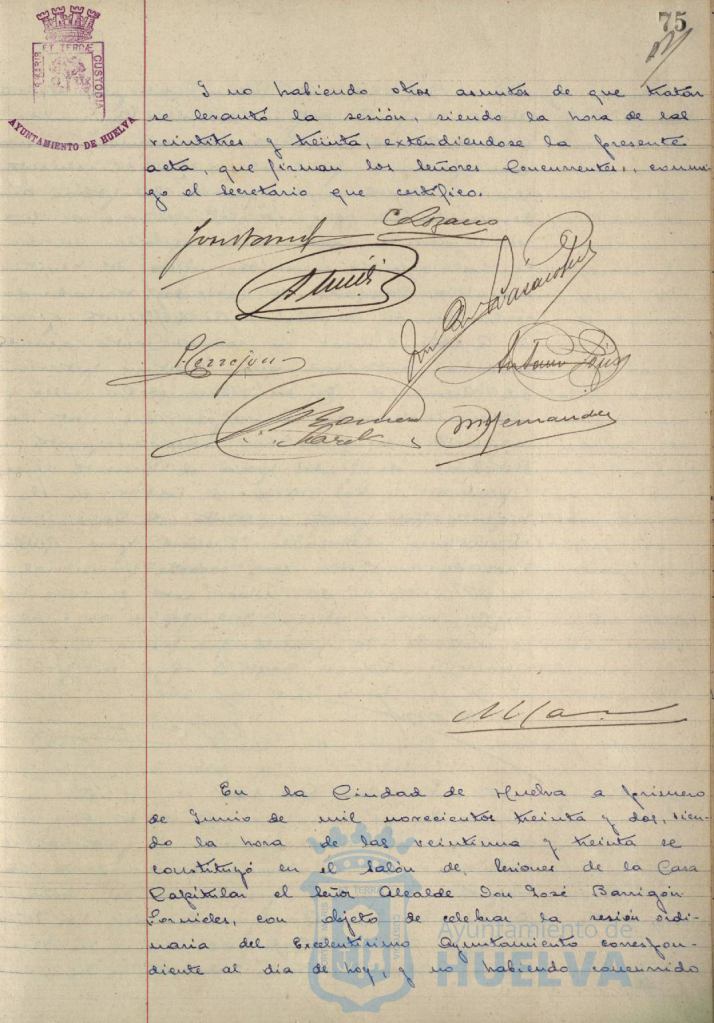 75
ET TERRÆ
CUSTODIA
AYUNTAMIENTO DE HUELVA
Y no habiendo otros asuntos de que tratar
se levantó la sesión, siendo la hora de las
veintitres y treinta, extendiendose la presente
acta, que firman los señores concurrentes, conmi-
go el secretario que certifico.
C Lozano
Antonio
Romero
M Hernandez
En la Ciudad de Huelva a primero
de Junio de mil novecientos treinta y dos, sien-
do la hora de las veintiuna y treinta se
constituyó en el salón de Sesiones de la Casa
Capitular el señor Alcalde Don José Barrigón
Fornieles, con objeto de celebrar la sesión ordi-
naria del Excelentisimo Ayuntamiento correspon-
diente al dia de hoy, y no habiendo concurrido
Ayuntamiento de
HUELVA